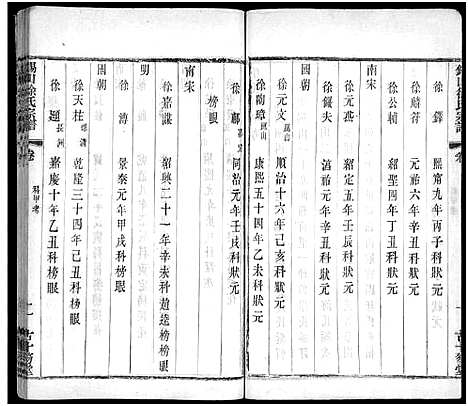 徐鐸 熙寧九年丙子科狀元
徐公輔 紹聖四年丁丑科狀元
南宋
徐元杰 紹定五年壬辰科狀元
徐鏜夫 淳祐元年辛丑科狀元
國朝
徐元文 崑山 順治十六年己亥科狀元
徐陶璋 崑山 康熙五十四年乙未科狀元
徐郙 嘉定 同治元年壬戌科狀元
榜眼
南宋
徐嘉謨 紹興二十一年辛未科趙逵榜眼
明
徐溥 景泰元年甲戌科榜眼
國朝
徐天柱 德清 乾隆三十四年己丑科榜眼
徐頲 長洲 嘉慶十年乙丑科榜眼
錫山徐氏宗譜
卷
科甲考
二